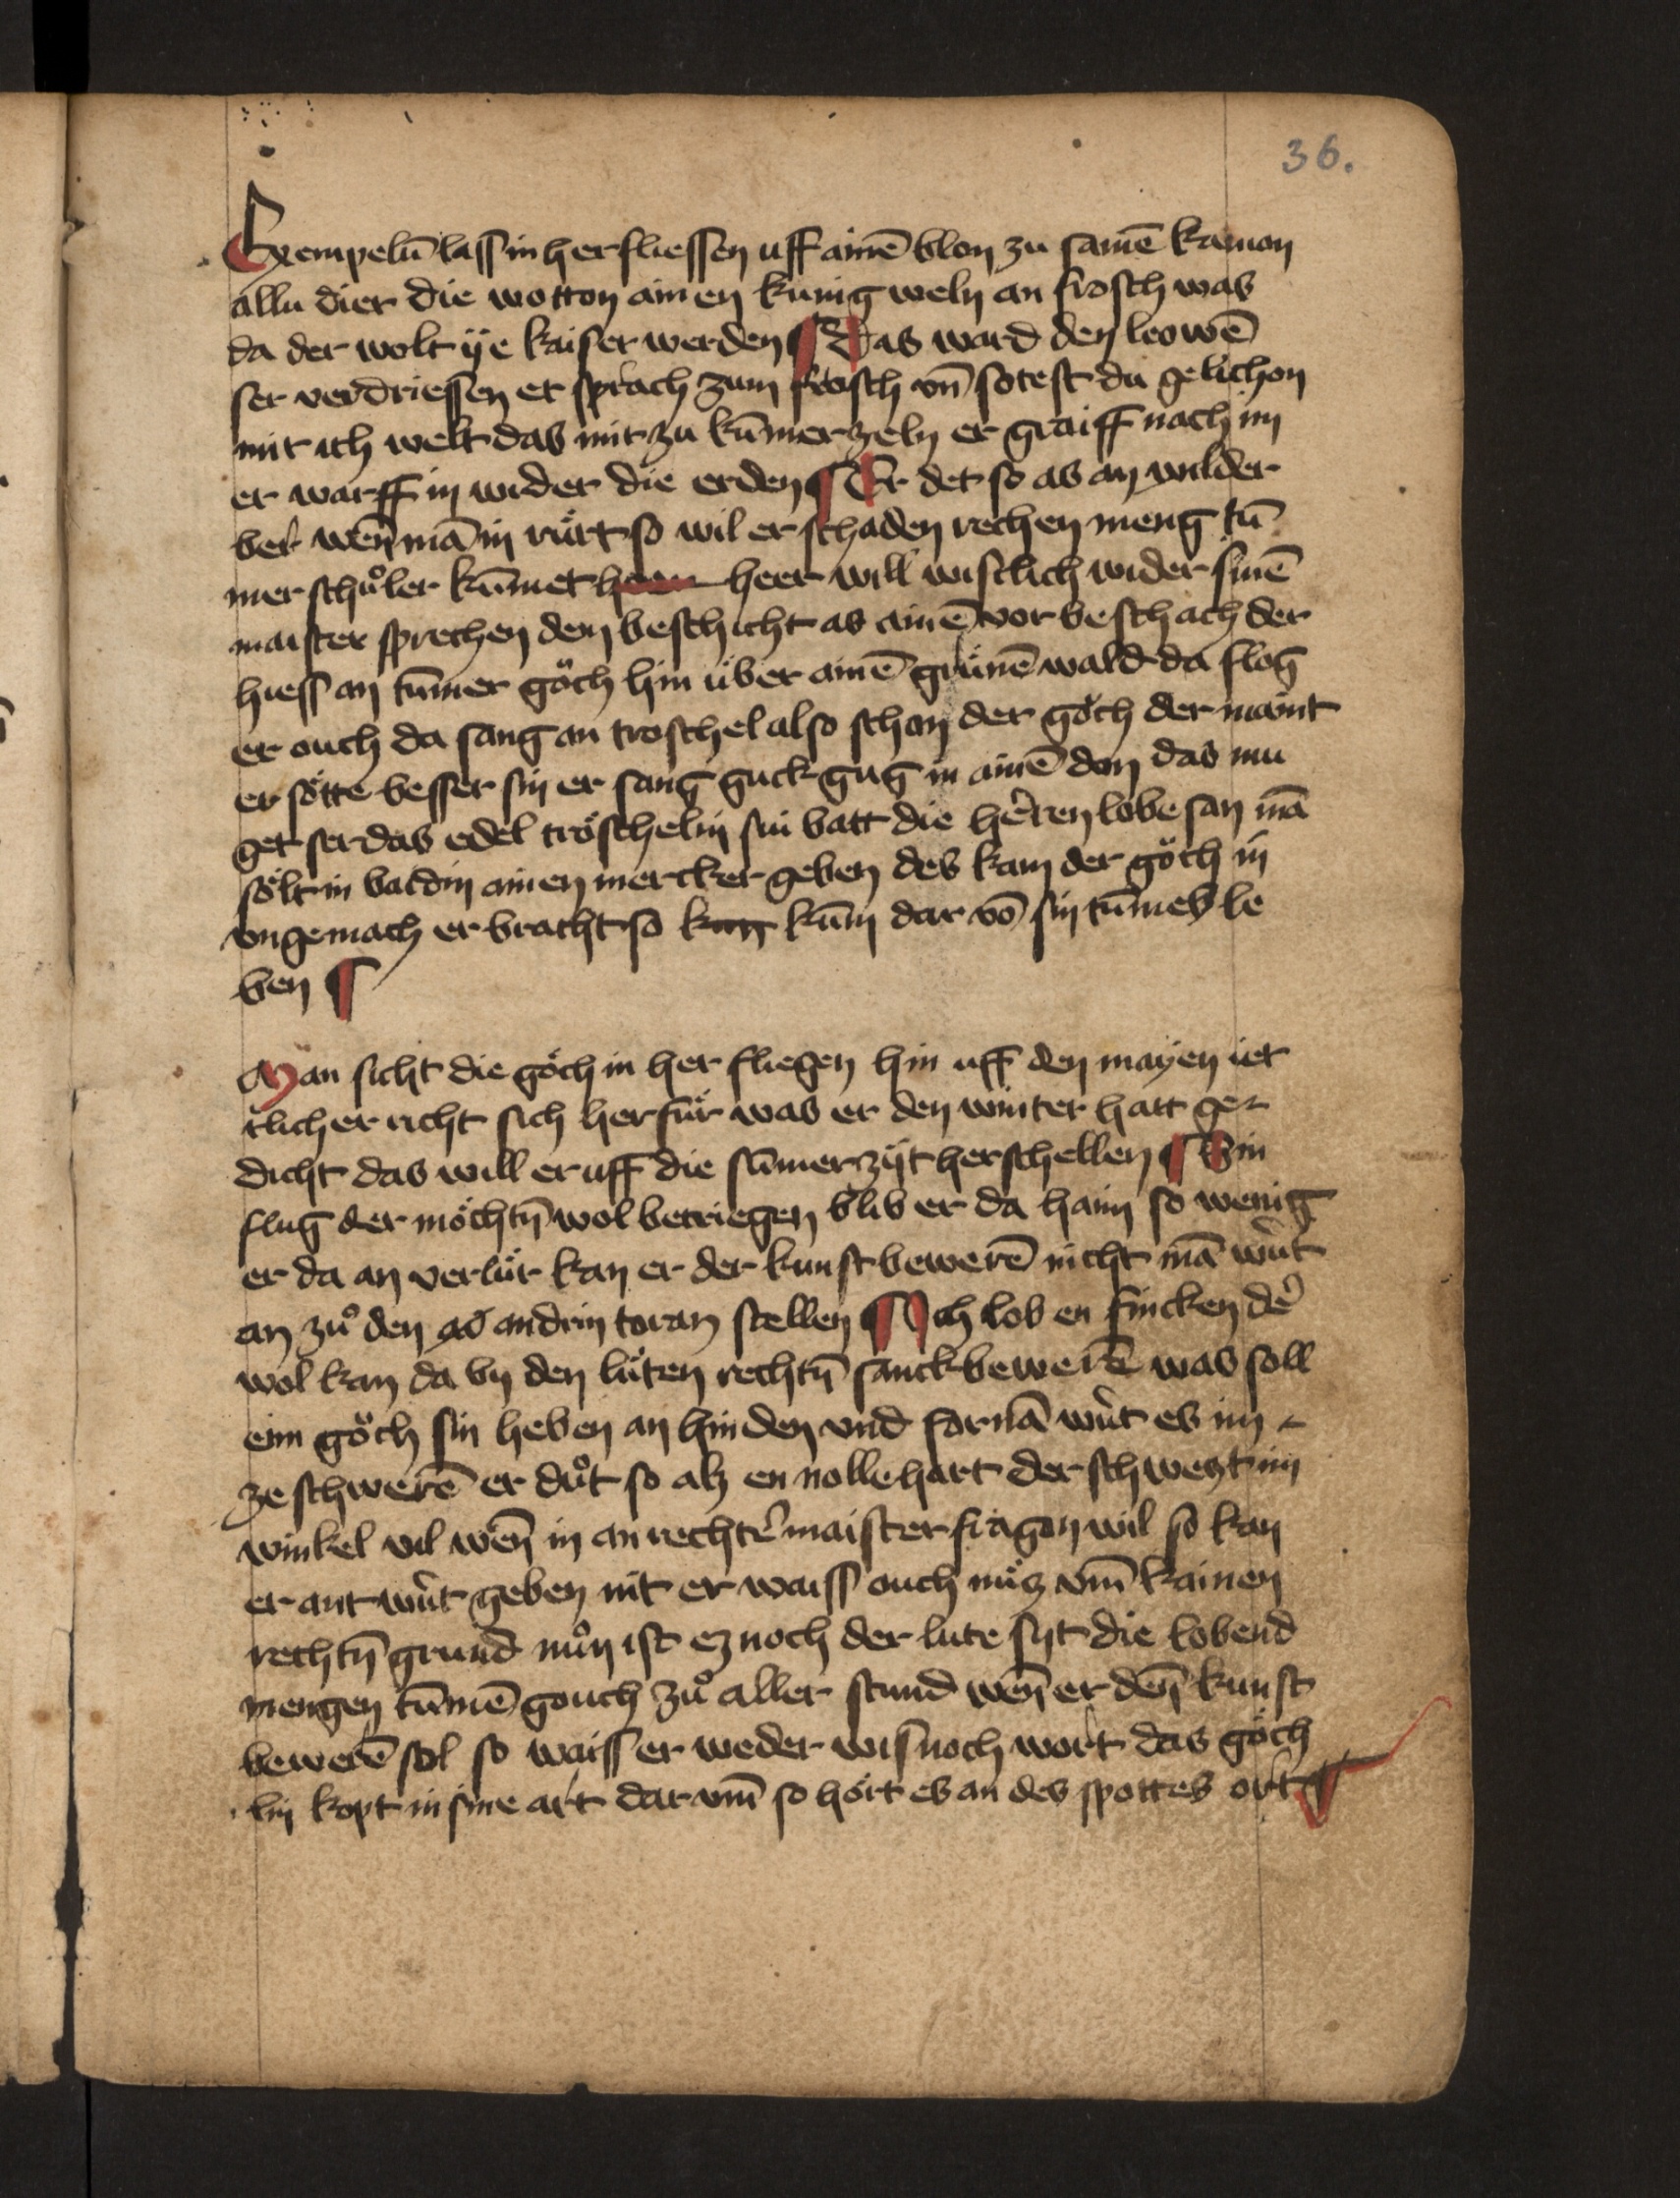 36.
Exempelū lass in her fliessen uff ainē blon zu samē kamon
allu dier die wotton ainen kunig weln an frosch was
da der wolt ÿe kaiser werden ¶ Das ward den leowē
ser verdriessen er sprach zum frosch vn̄ sotest du gelichon
mir ich welt das mir zu kūmer zeln er graiff nach im
er warff in wider die erden ¶ Er det so as an wilder
ber wen̄ mā in rürt so wil er schaden rechen meng tū
mer schůler kūmet heer will wistlich wider sinē
maister sprechen dem beschicht as ainē vor beschach der
hiess an tūmer göch hin über ainē grünē wald da flog
er ouch da sang an troschel also schon der göch der maint
er sötte besser sin er sang guck gug in ainē don das mu
get ser das edel tröschelin sui batt die herren lobesan mā
sölt in baidin ainen mercker geben des kam der göch in
ungemach er bracht so kum kūm dar vō sin tūmes le
ben ¶
Man sicht die göch in her fliegen hin uff den mayen iet
tlicher richt sich herfür was er den winter hatt ge-
dicht das will er uff die sūmer zÿt herschellen ¶ Ein
flug der möcht in̄ wol betriegen blib er da haim so wenig
er da an verlür kan er der kunst bewerē nicht mā wirt
an zů den as andrin toran stellen ¶ Ich lob en fincken der
wol kan da by den lüten rechtn̄ sanck bewerē was soll
eim göch sin heben an hinden vnd fornā wirt es im
ze schwerē er důt so alz en nollehart der schwezt im
winkel vil wen̄ in an rechter maister fragen wil so kan
er antwirt geben nit er waiss ouch nüz vm̄ kainen
rechtn̄ grund nůn ist ez noch der lute syt die lobend
mengen tūmē gouch zů aller stund wen̄ er den̄ kunst
bewerē sol so waiss er weder wis noch wort das göch
lin kopt in sine art dar vm̄ so hört es an des spottes ort ¶